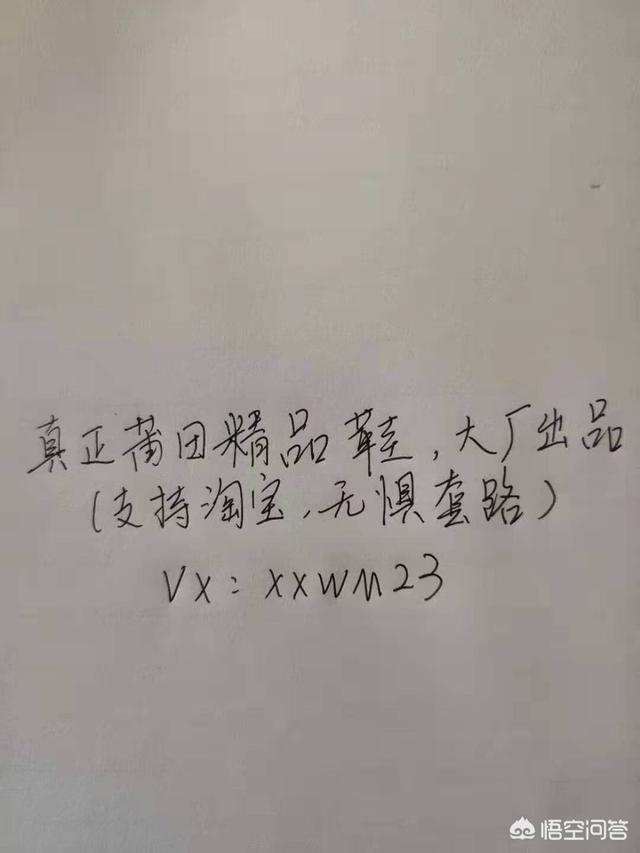 真正莆田精品鞋，大厂出品
（支持淘宝，无惧套路）
VX：XXWM23
悟空问答